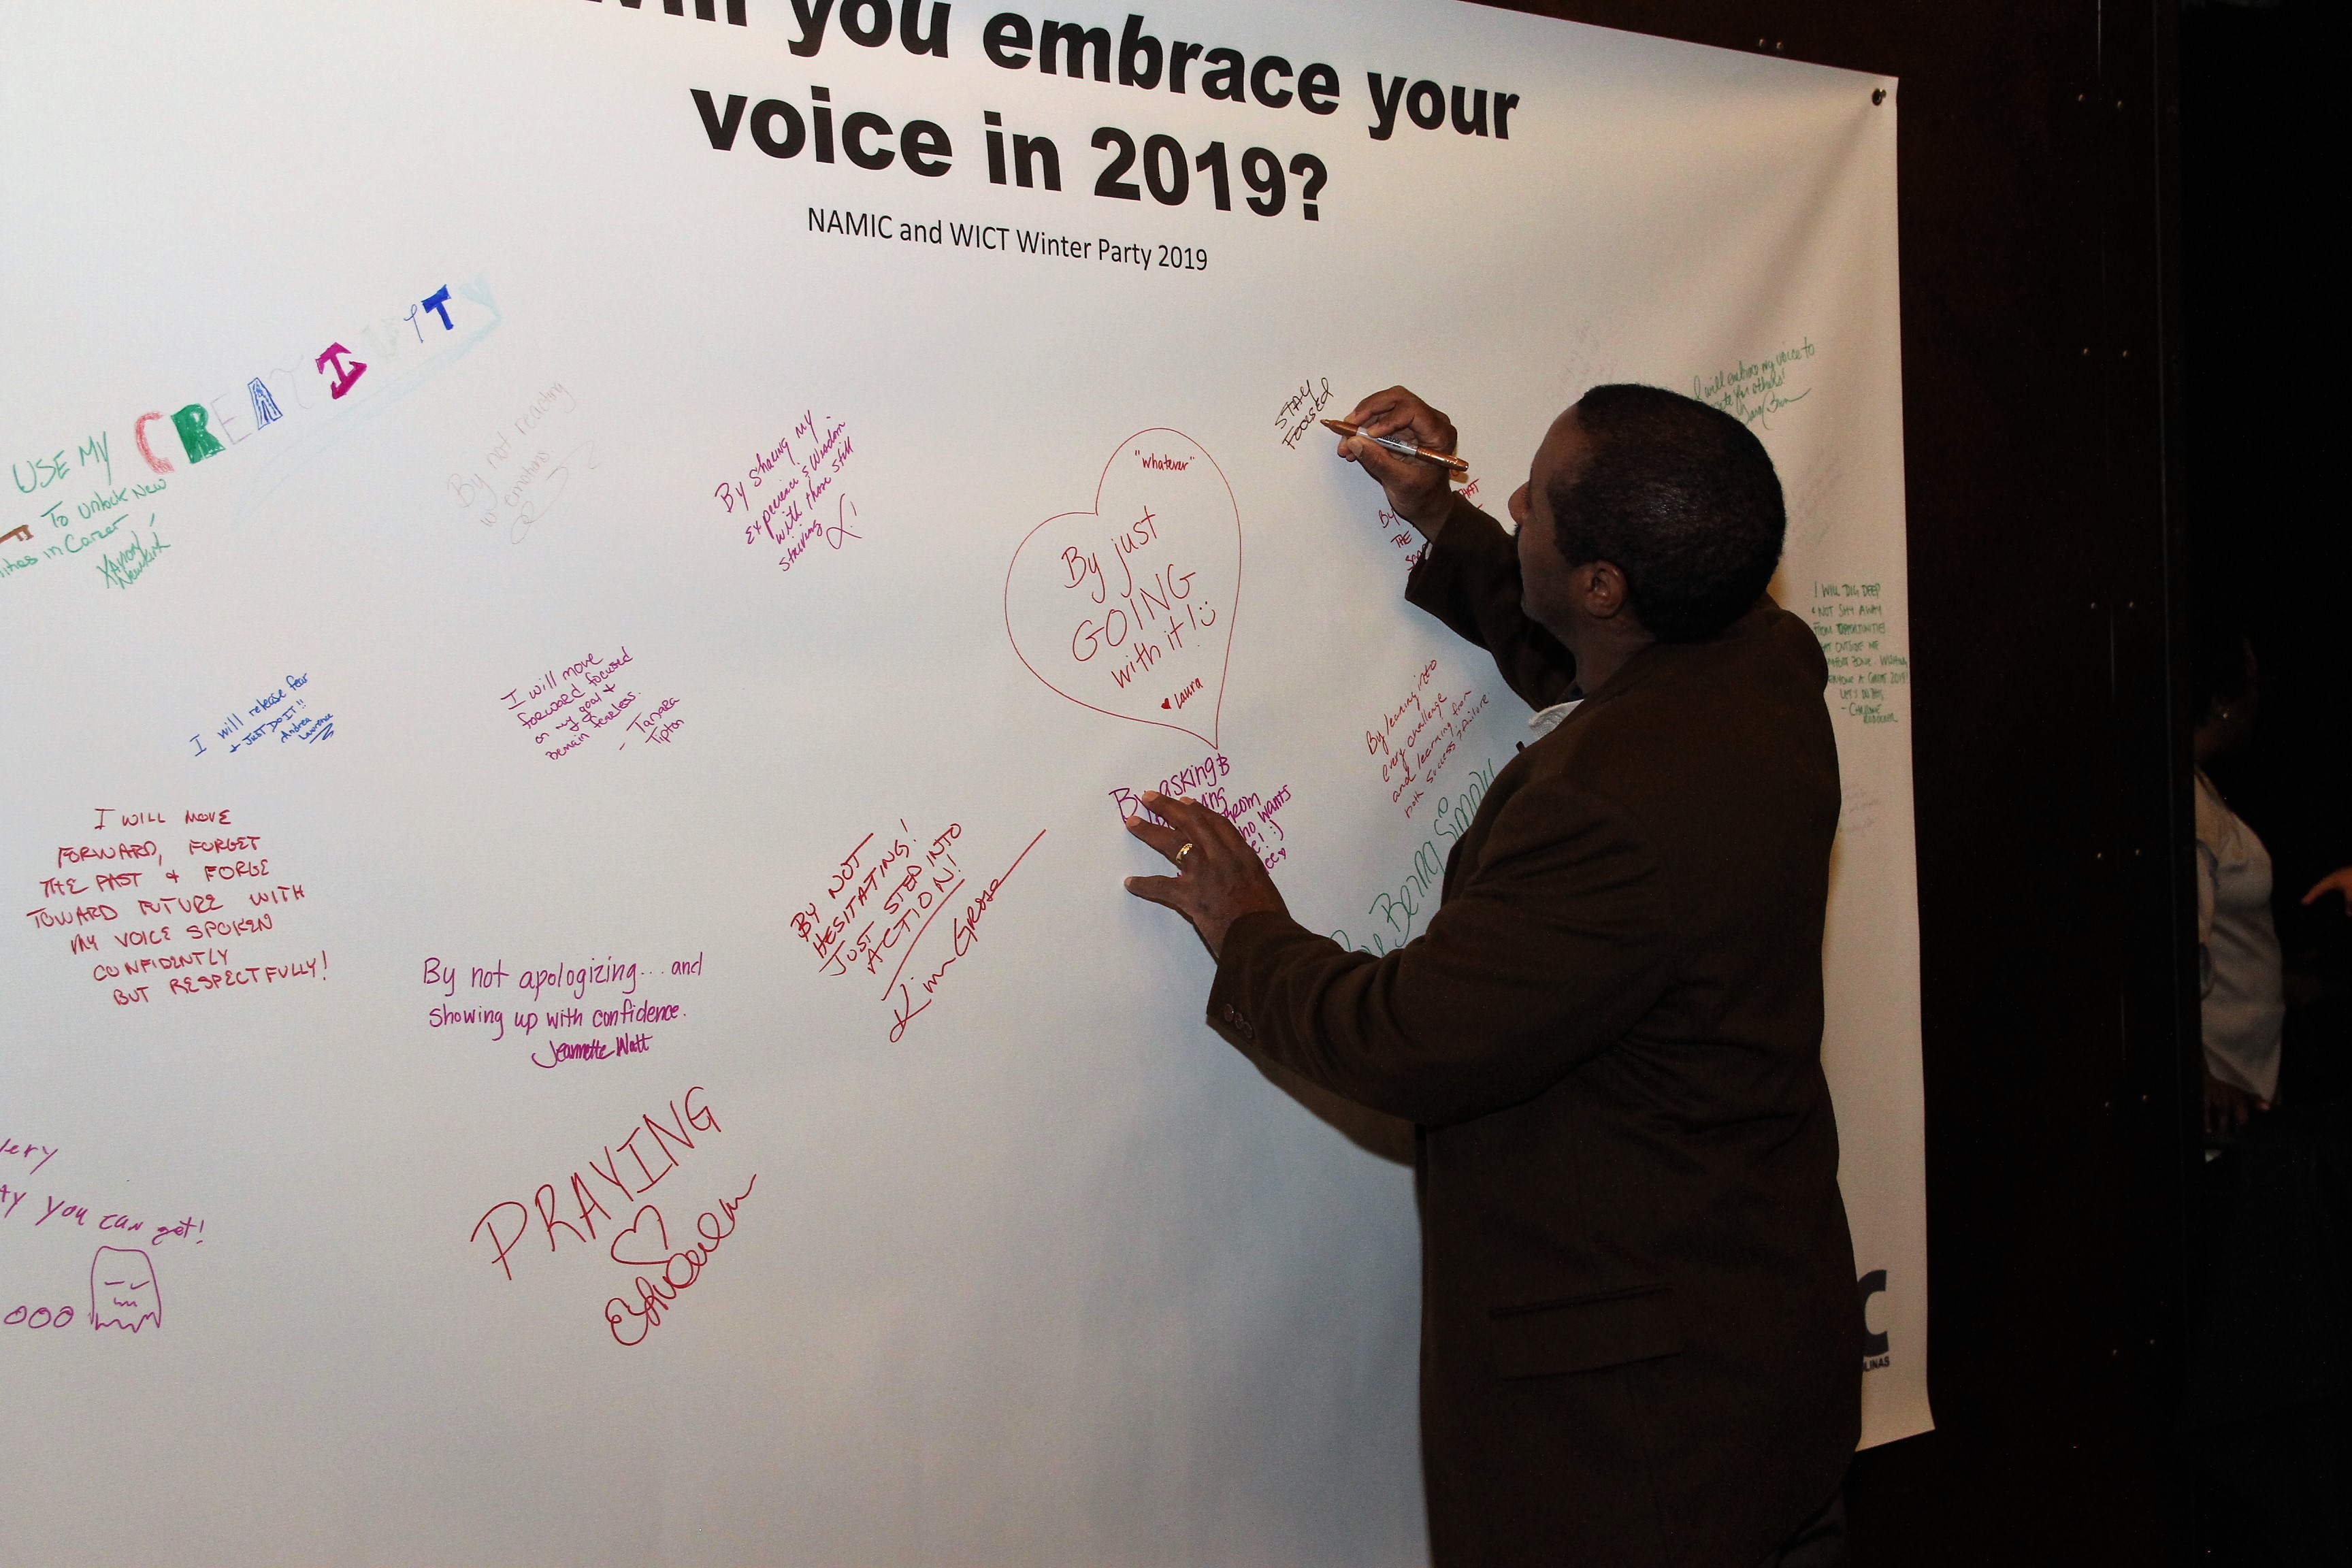 you embrace your
voice in 2019?
NAMIC and WICT Winter Party 2019
USE MY CREATIVITY
To Unlock New
in Career
Xavion
Newkirk
By not reacting
w emotions
By sharing my
experience & wisdom
with those still
striving
"whatever"
By just
GOING
with it!
Laura
STAY
Foucsed
By
THAT
THE
I will embrace my voice to
for others!
I WILL DIG DEEP
& NOT SHY AWAY
FROM OPPORTUNITIES
OUTSIDE ME
ZONE. WISHING
A GREAT 2019!
LET'S DO THIS
I will release fear
+ JUST DO IT!!
Andrea
Lawrence
I will move
forward focused
on my goal &
remain fearless.
- Tamara
Tipton
By leaning into
every challenge
and learning from
both success & failure.
By asking
from
who wants
:)
Being Simply
I WILL MOVE
FORWARD, FORGET
THE PAST & FORGE
TOWARD FUTURE WITH
MY VOICE SPOKEN
CONFIDENTLY
BUT RESPECTFULLY!
BY NOT
HESITATING!
JUST STEP INTO
ACTION!
Kim Grose
By not apologizing... and
showing up with confidence.
Jeannette Watt
PRAYING
you can get!
ooo
C
LINAS